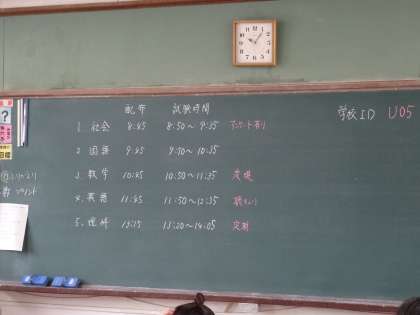 学校ID U05
配布 試験時間
1. 社会 8:45 8:50～9:35 アンケート有り
2. 国語 9:45 9:50～10:35
3. 数学 10:45 10:50～11:35
4. 英語 11:45 11:50～12:35
5. 理科 13:15 13:20～14:05 定規
?
目標
プリント